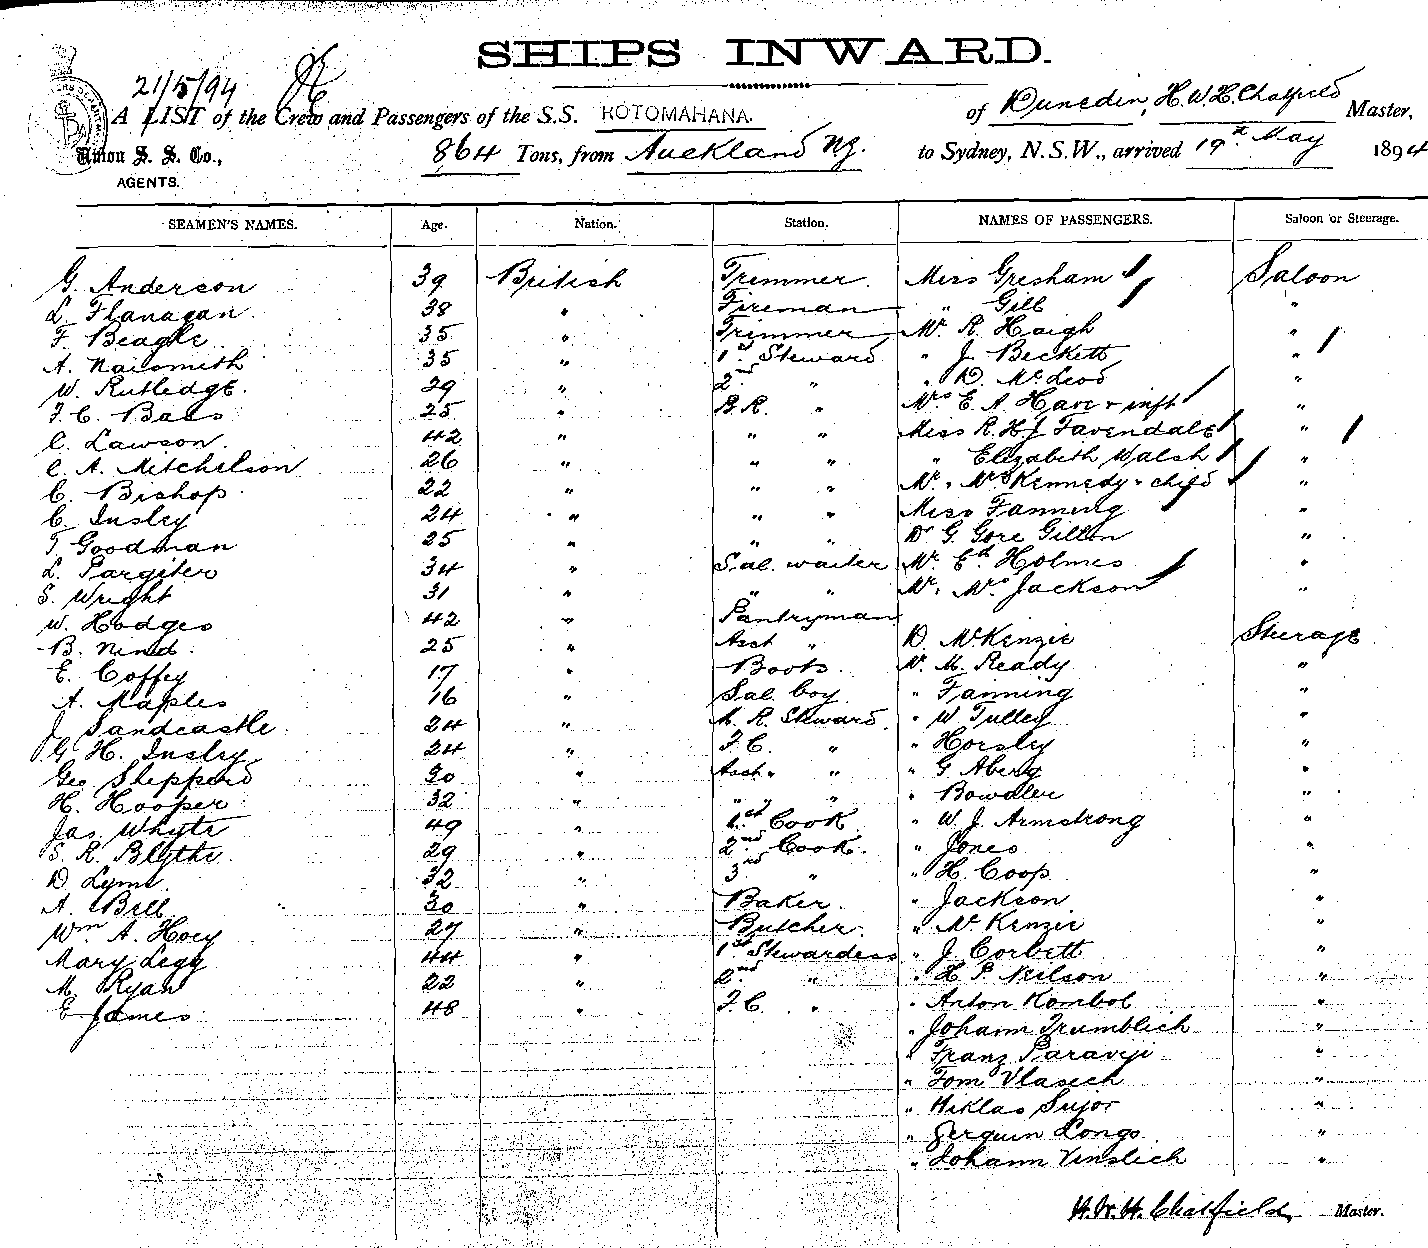 SHIPS INWARD.
21/5/94
A LIST of the Crew and Passengers of the S.S. ROTOMAHANA. of Dunedin, H. W. H. Chatfield Master,
Union S. S. Co., 864 Tons, from Auckland NZ. to Sydney, N.S.W., arrived 19th May 1894
AGENTS.
SEAMEN'S NAMES. Age. Nation. Station. NAMES OF PASSENGERS. Saloon or Steerage.
G. Anderson 39 British Trimmer Miss Gresham Saloon
L. Flanagan 38 " Fireman " Gill "
F. Beagle 35 " Trimmer Mr. R. Haigh "
A. Naismith 35 " 1st Steward " J. Beckett "
W. Rutledge 29 " 2nd " " D. McLeod "
F. C. Bass 25 " B.R. " Mrs E. A. Hare & inft "
C. Lawson. 42 " " " Miss R. H. J. Favendale "
C. A. Mitchelson 26 " " " " Elizabeth Walsh "
C. Bishop 22 " " " Mr. " Mrs Kennedy " child "
C. Insley 24 " " " Miss Fanning "
T. Goodman 25 " " " Dr G. Gore "
L. Pargiter 34 " Sal. waiter Mr. Holmes "
S. Wright 31 " " " Mr. Mrs Jackson "
W. Hodges 42 " Pantryman
B. Nind. 25 " Asst " D. McKenzie Steerage
E. Coffey 17 " Boots Mr. M. Ready "
A. Maples 16 " Sal. boy " Fanning "
J. Sandcastle 24 " S. R. Steward " W Tulley "
G. H. Insley 24 " F.C. " " Horsley "
Geo Sheppard 30 " Asst " " " G. Aberg "
H. Hooper 32 " " " " Bowdler "
Jas. Whyte 49 " 1st Cook " W. J. Armstrong "
S. R. Blythe. 29 " 2nd Cook. " Jones "
D. Lyme 32 " 3rd " " H. Coop "
A. Bell 30 " Baker. " Jackson "
Wm. A. Hoey 27 " Butcher. " McKenzie "
Mary Legg 44 " 1st Stewardess " J. Corbett "
M. Ryan 22 " 2nd " " H. P. Neilson "
E James 48 " F.C. " " Anton Kombol "
" Johann Trumblich "
" Franz "
" Tom Vlasich "
" Niklas "
" Longo "
" Johann "
H. W. H. Chatfield, Master.